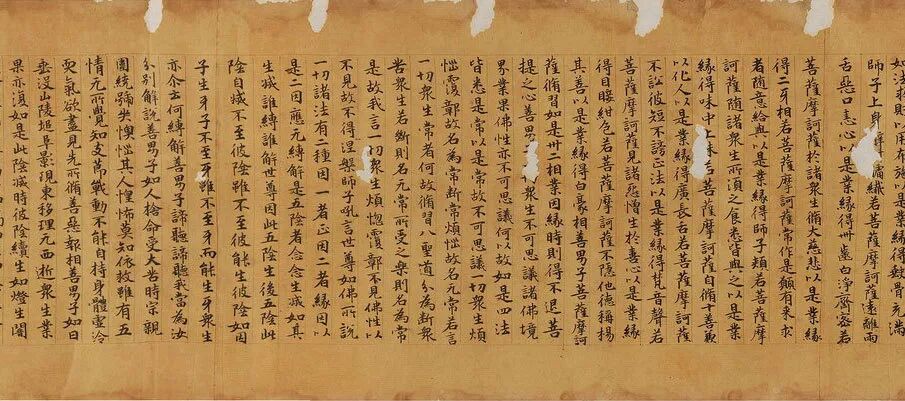 如法財以用布施以是業緣得
師子上身臂肘𦟛纖若菩薩摩訶薩遠離兩
舌惡口恚心以是業緣得卌齒白淨齊密若
菩薩摩訶薩於諸眾生脩大慈悲以是業緣
得二牙相若菩薩摩訶薩常作是願有來求
者随意給與以是業緣得師子頰若菩薩摩
訶薩随諸眾生所須之食悉皆與之以是業
緣得味中上味若菩薩摩訶薩自脩十善兼
以化人以是業緣得廣長舌若菩薩摩訶薩
不訟彼短不謗正法以是業緣得梵音聲若
菩薩摩訶薩見諸怨憎生於喜心以是業緣
得目睫紺色若菩薩摩訶薩不隱他德稱揚
其善以是業緣得白豪相善男子若菩薩摩訶
薩脩習如是卅二相業因緣時則得不退菩
提之心善男眾生不可思議諸佛境
界業果佛性亦不可思議何以故如是四法
皆悉是常以是常故不可思議一切眾生煩
惱覆鄣故名為常斷常煩惱故名无常若言
一切眾生常者何故脩習八聖道分為斷眾
苦眾生若斷則名无常所受之樂則名為常
是故我言一切眾生煩惱覆鄣不見佛性以
不見故不得涅槃師子吼言世尊如佛所說
一切諸法有二種因一者正因二者緣因以
是二因應无縛解是五陰者念念生滅如其
生滅誰縛誰解世尊因此五陰生後五陰此
陰自滅不至彼陰雖不至彼能生彼陰如因
子生牙子不至牙雖不至牙而能生牙眾生
亦介云何縛解善男子諦聽諦聽我當為汝
分別解說善男子如人捨命受大苦時宗親
圍繞號哭懊惱其人惶怖莫知依救雖有五
情无所覺知支莭戰動不能自持身體虛冷
煗氣欲盡見先所脩善惡報相善男子如日
垂沒山陵堆阜影現東移理无西逝眾生業
果亦復如是此陰滅時彼陰續生如燈生闇